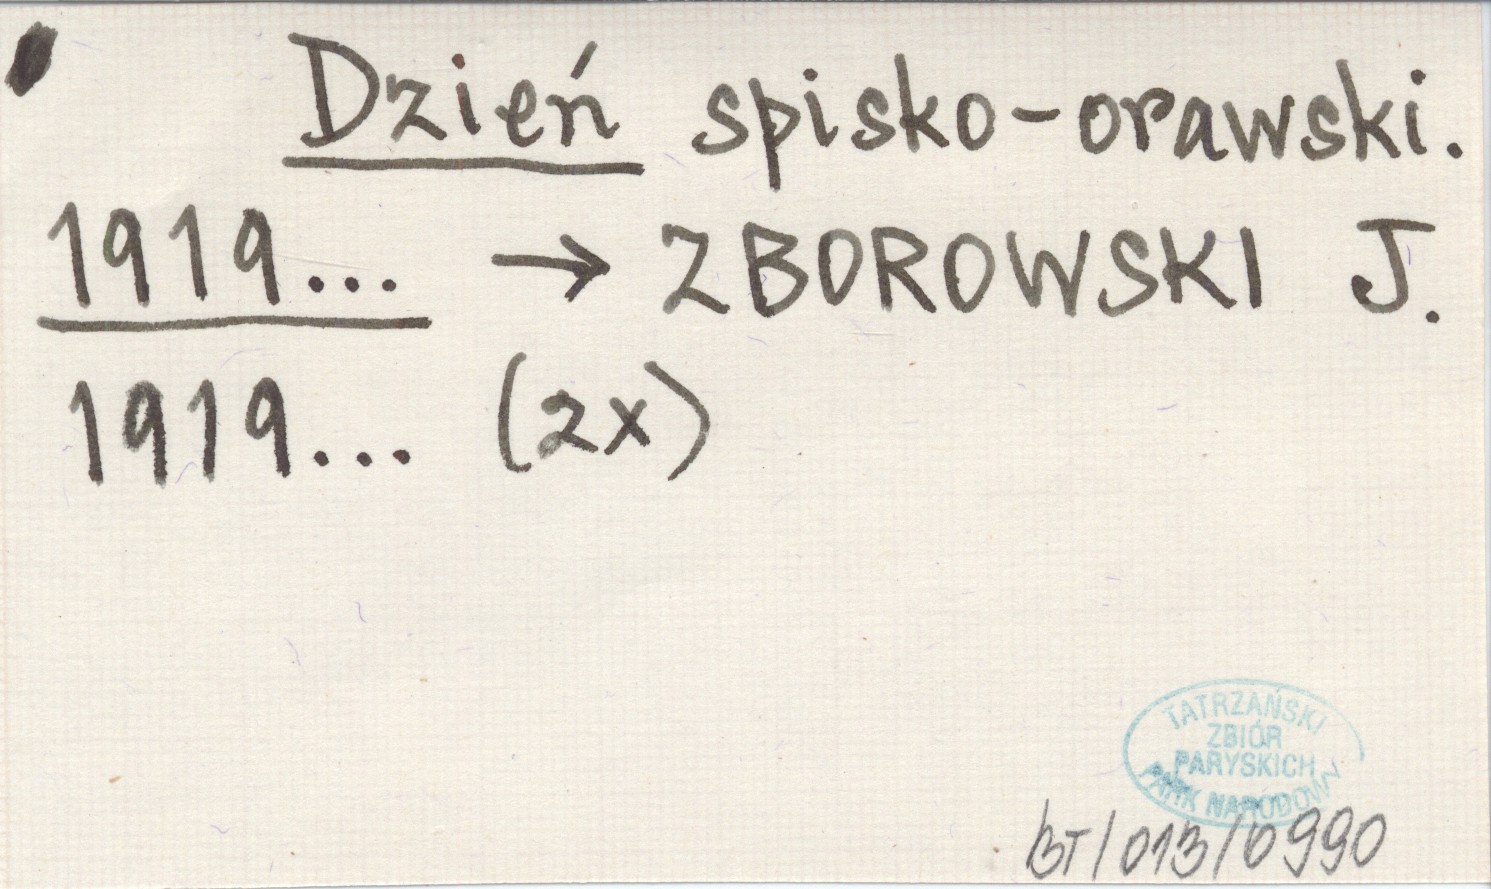 Dzień spisko-orawski.
1919... → ZBOROWSKI J.
1919... (2x)
TATRZAŃSKI
ZBIÓR
PARYSKICH
PARK NARODOWY
BT/013/0990